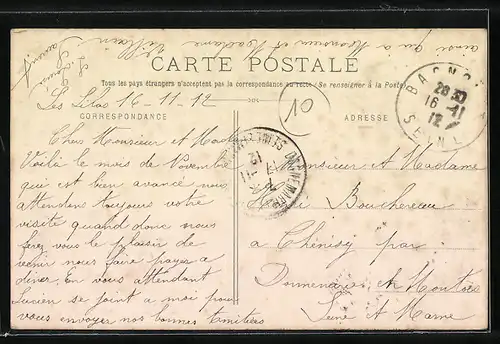 ainsi qu'a Monsieur et Madame Villain
L. Laurent
CARTE POSTALE
Tous les pays étrangers n'acceptent pas la correspondance au recto (Se renseigner à la Poste)
Les Lilas 16-11-12
CORRESPONDANCE
ADRESSE
Chers Monsieur et Madame
Voilà le mois de Novembre
qui est bien avancé nous
attendons toujours votre
visite quand donc nous
ferez vous le plaisir de
venir nous faire
diner. En vous attendant
Lucien se joint a moi pour
vous envoyer nos bonnes Amitiées
Monsieur et Madame
Bouchereau
a Chénisy par
Donnemarie et Montois
Seine et Marne
BAGNO
16-11
12
SEINE